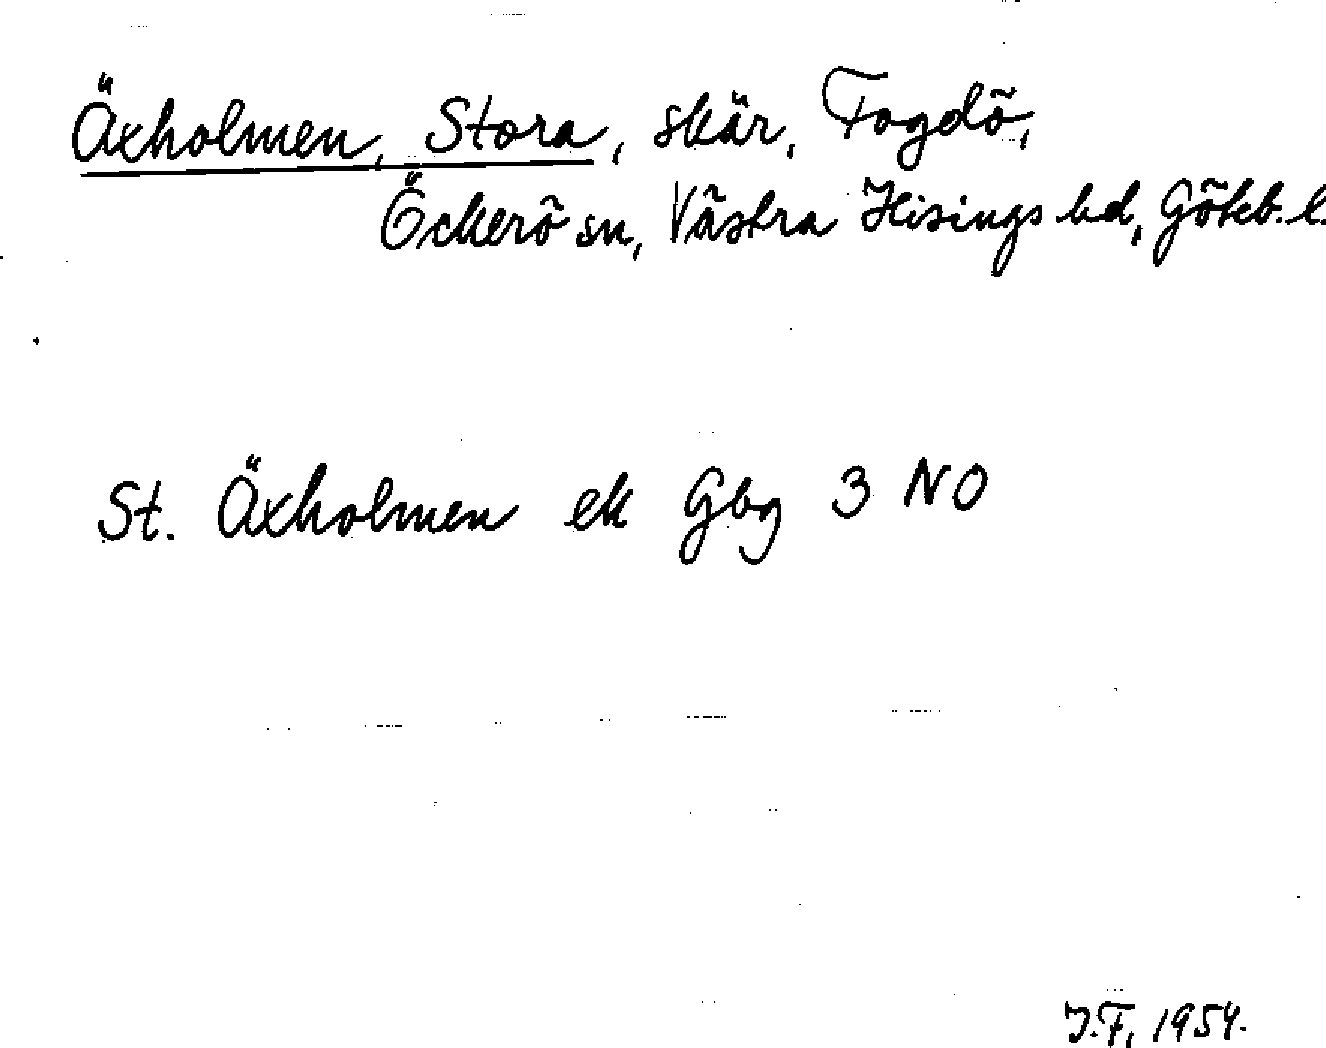 Äxholmen, Stora, skär, Fogdö,
Öckerö sn, Västra Hisings hd, Göteb. l.
St. Äxholmen ek Gbg 3 NO
J.F. 1954.